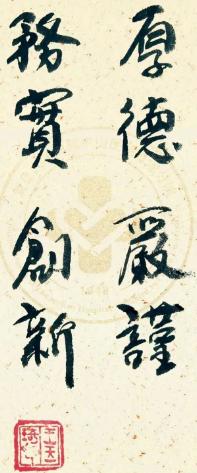 厚德 嚴謹
務實 創新